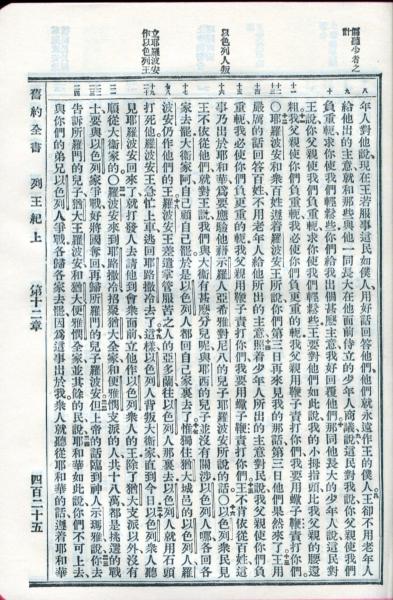 偏聽少者之計
以色列人叛
立耶羅波安作以色列王
年人對他說、現在王若服事這民如僕人、用好話回答他們、他們就永遠作王的僕人、王卻不用老年人
給他出的主意、就和那些與他一同長大在他面前侍立的少年人商議、說、這民對我說、你父親使我們
負重軛、求你使我們輕鬆些、你們給我出個甚麼主意、我好回覆他們、那同他長大的少年人說、這民對
王說、你父親使我們負重軛、求你使我們輕鬆些、王要對他們如此說、我的小拇指頭比我父親的腰還
粗、我父親使你們負重軛、我必使你們負更重的軛、我父親用鞭子責打你們、我要用蠍子鞭責打你們。
〇耶羅波安和衆百姓遵着羅波安王所說你們第三日再來見我的那話、第三日他們果然來了、王用
嚴厲的話回答百姓、不用老年人給他所出的主意、照着少年人所出的主意對民說、我父親使你們負
重軛、我必使你們負更重的軛、我父親用鞭子責打你們、我要用蠍子鞭責打你們、王不肯依從百姓、這
事乃出於耶和華、爲要應驗他藉示羅人亞希雅對尼八的兒子耶羅波安所說的話〇以色列衆民見
王不依從他們、就對王說、我們與大衛有甚麼分兒呢、與耶西的兒子並沒有關涉、以色列人哪、各回各
家去罷、大衛家阿、自己顧自己罷、於是以色列人都回自己家裏去了、惟獨住猶大城邑的以色列人、羅
波安仍作他們的王、羅波安王差遣掌管服苦之人的亞多蘭往以色列人那裏去、以色列人就用石頭
打死他、羅波安王急忙上車逃回耶路撒冷去了、這樣以色列人背叛大衛家直到今日、以色列衆人聽
見耶羅波安回來了、就打發人去請他到會衆面前、立他作以色列衆人的王、除了猶大支派以外、沒有
順從大衛家的〇羅波安來到耶路撒冷、招聚猶大全家和便雅憫支派的人、共十八萬、都是挑選的戰
士、要與以色列家爭戰、好將國奪回、再歸所羅門的兒子羅波安、但上帝的話臨到神人示瑪雅說、你去
告訴所羅門的兒子猶大王羅波安、和猶大便雅憫全家、並其餘的民說、耶和華如此說、你們不可上去
與你們的弟兄以色列人爭戰、各歸各家去罷、因爲這事出於我、衆人就聽從耶和華的話、遵着耶和華
舊約全書 列王紀上 第十二章 四百二十五